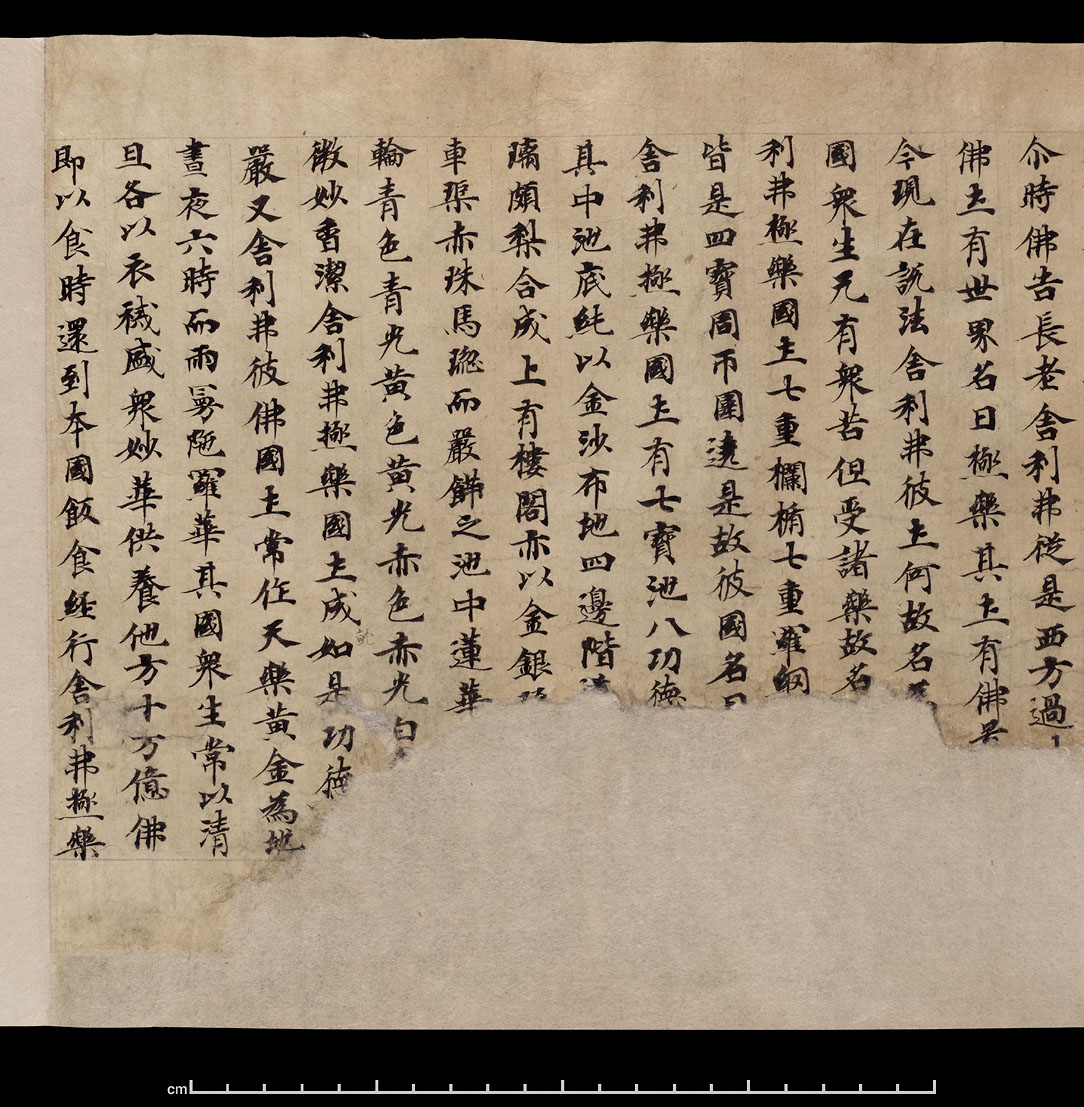 尒時佛告長老舍利弗從是西方過
佛土有世界名曰極樂其土有佛号
今現在說法舍利弗彼土何故名為
國衆生无有衆苦但受諸樂故名
利弗極樂國土七重欄楯七重羅網
皆是四寶周帀圍遶是故彼國名曰
舍利弗極樂國土有七寶池八功德
其中池底純以金沙布地四邊階道
璃頗梨合成上有樓閣亦以金銀
車渠赤珠馬瑙而嚴飾之池中蓮華
輪青色青光黃色黃光赤色赤光白
微妙香潔舍利弗極樂國土成如是功德
嚴又舍利弗彼佛國土常作天樂黃金為地
晝夜六時而雨曼陁羅華其國衆生常以清
旦各以衣裓盛衆妙華供養他方十万億佛
即以食時還到本國飯食經行舍利弗極樂
cm